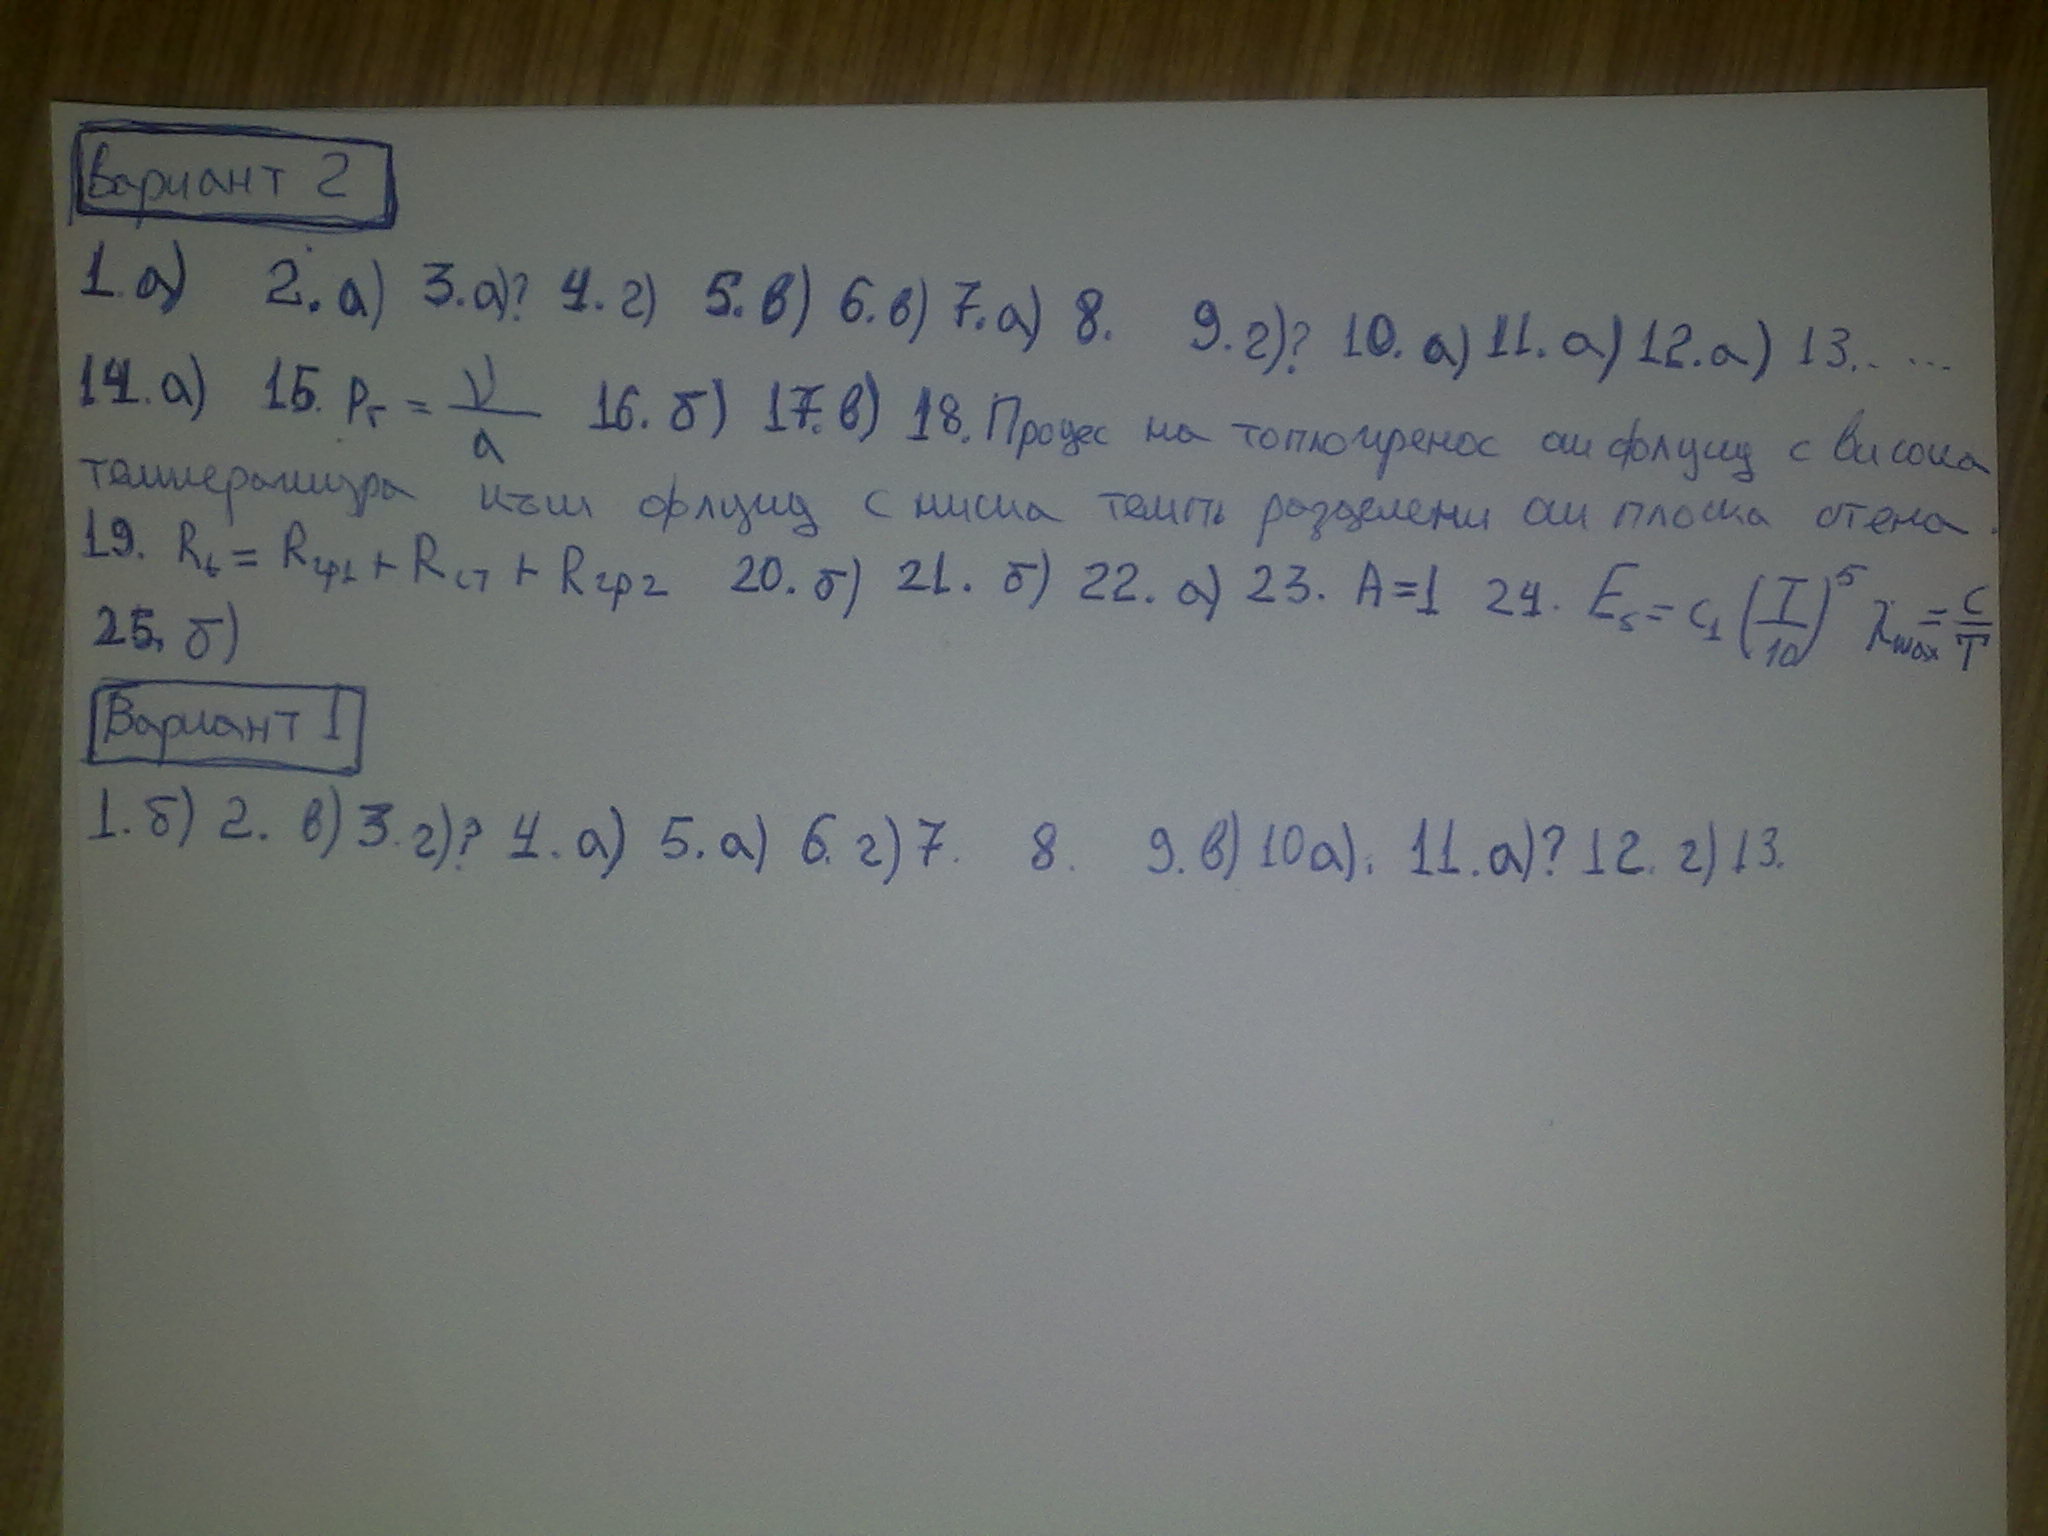 Вариант 2
1. а) 2. а) 3. а)? 4. г) 5. в) 6. в) 7. а) 8. 9. г)? 10. а) 11. а) 12. а) 13. . ...
14. а) 15. Pr = ν/a 16. б) 17. в) 18. Процес на топлопренос от флуид с висока
температура към флуид с ниска темп. разделени от плоска стена.
19. Rt = Rгр1 + Rст + Rгр2 20. б) 21. б) 22. а) 23. A=1 24. Es = c1 (T/10)^5 λmax = c/T
25. б)
Вариант 1
1. б) 2. в) 3. г)? 4. а) 5. а) 6. г) 7. 8. 9. в) 10 а). 11. а)? 12. г) 13.